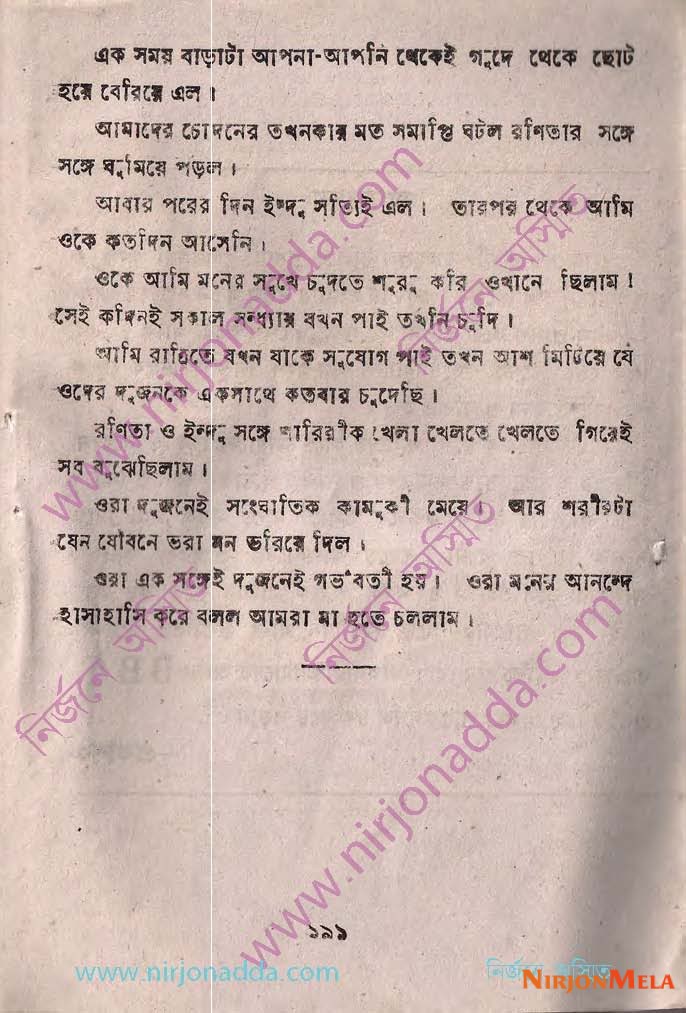 এক সময় বাড়াটা আপনা-আপনি থেকেই গুদে থেকে ছোট
হয়ে বেরিয়ে এল।
আমাদের চোদনের তখনকার মত সমাপ্তি ঘটল রণিতার সঙ্গে
সঙ্গে ঘুমিয়ে পড়ল।
আবার পরের দিন ইন্দু সত্যিই এল। তারপর থেকে আমি
ওকে কতদিন আসেনি।
ওকে আমি মনের সুখে চুদতে শুরু করি ওখানে ছিলাম!
সেই কদিনই সকাল সন্ধ্যায় যখন পাই তখনি চুদি।
আমি রাত্রিতে যখন যাকে সুযোগ পাই তখন আশ মিটিয়ে যে
ওদের দুজনকে একসাথে কতবার চুদেছি।
রণিতা ও ইন্দু সঙ্গে শারিরীক খেলা খেলতে খেলতে গিয়েই
সব বুঝেছিলাম।
ওরা দুজনেই সংঘাতিক কামুকী মেয়ে। আর শরীরটা
যেন যৌবনে ভরা মন ভরিয়ে দিল।
ওরা এক সঙ্গেই দুজনেই গর্ভবতী হয়। ওরা মনের আনন্দে
হাসাহাসি করে বলল আমরা মা হতে চললাম।
১৯৯
www.nirjonadda.com
www.nirjonadda.com
www.nirjonadda.com
নির্জনে অস্মিত
নির্জনে অস্মিত
নির্জনে অস্মিত
নির্জনে অস্মিত
NIRJONMELA